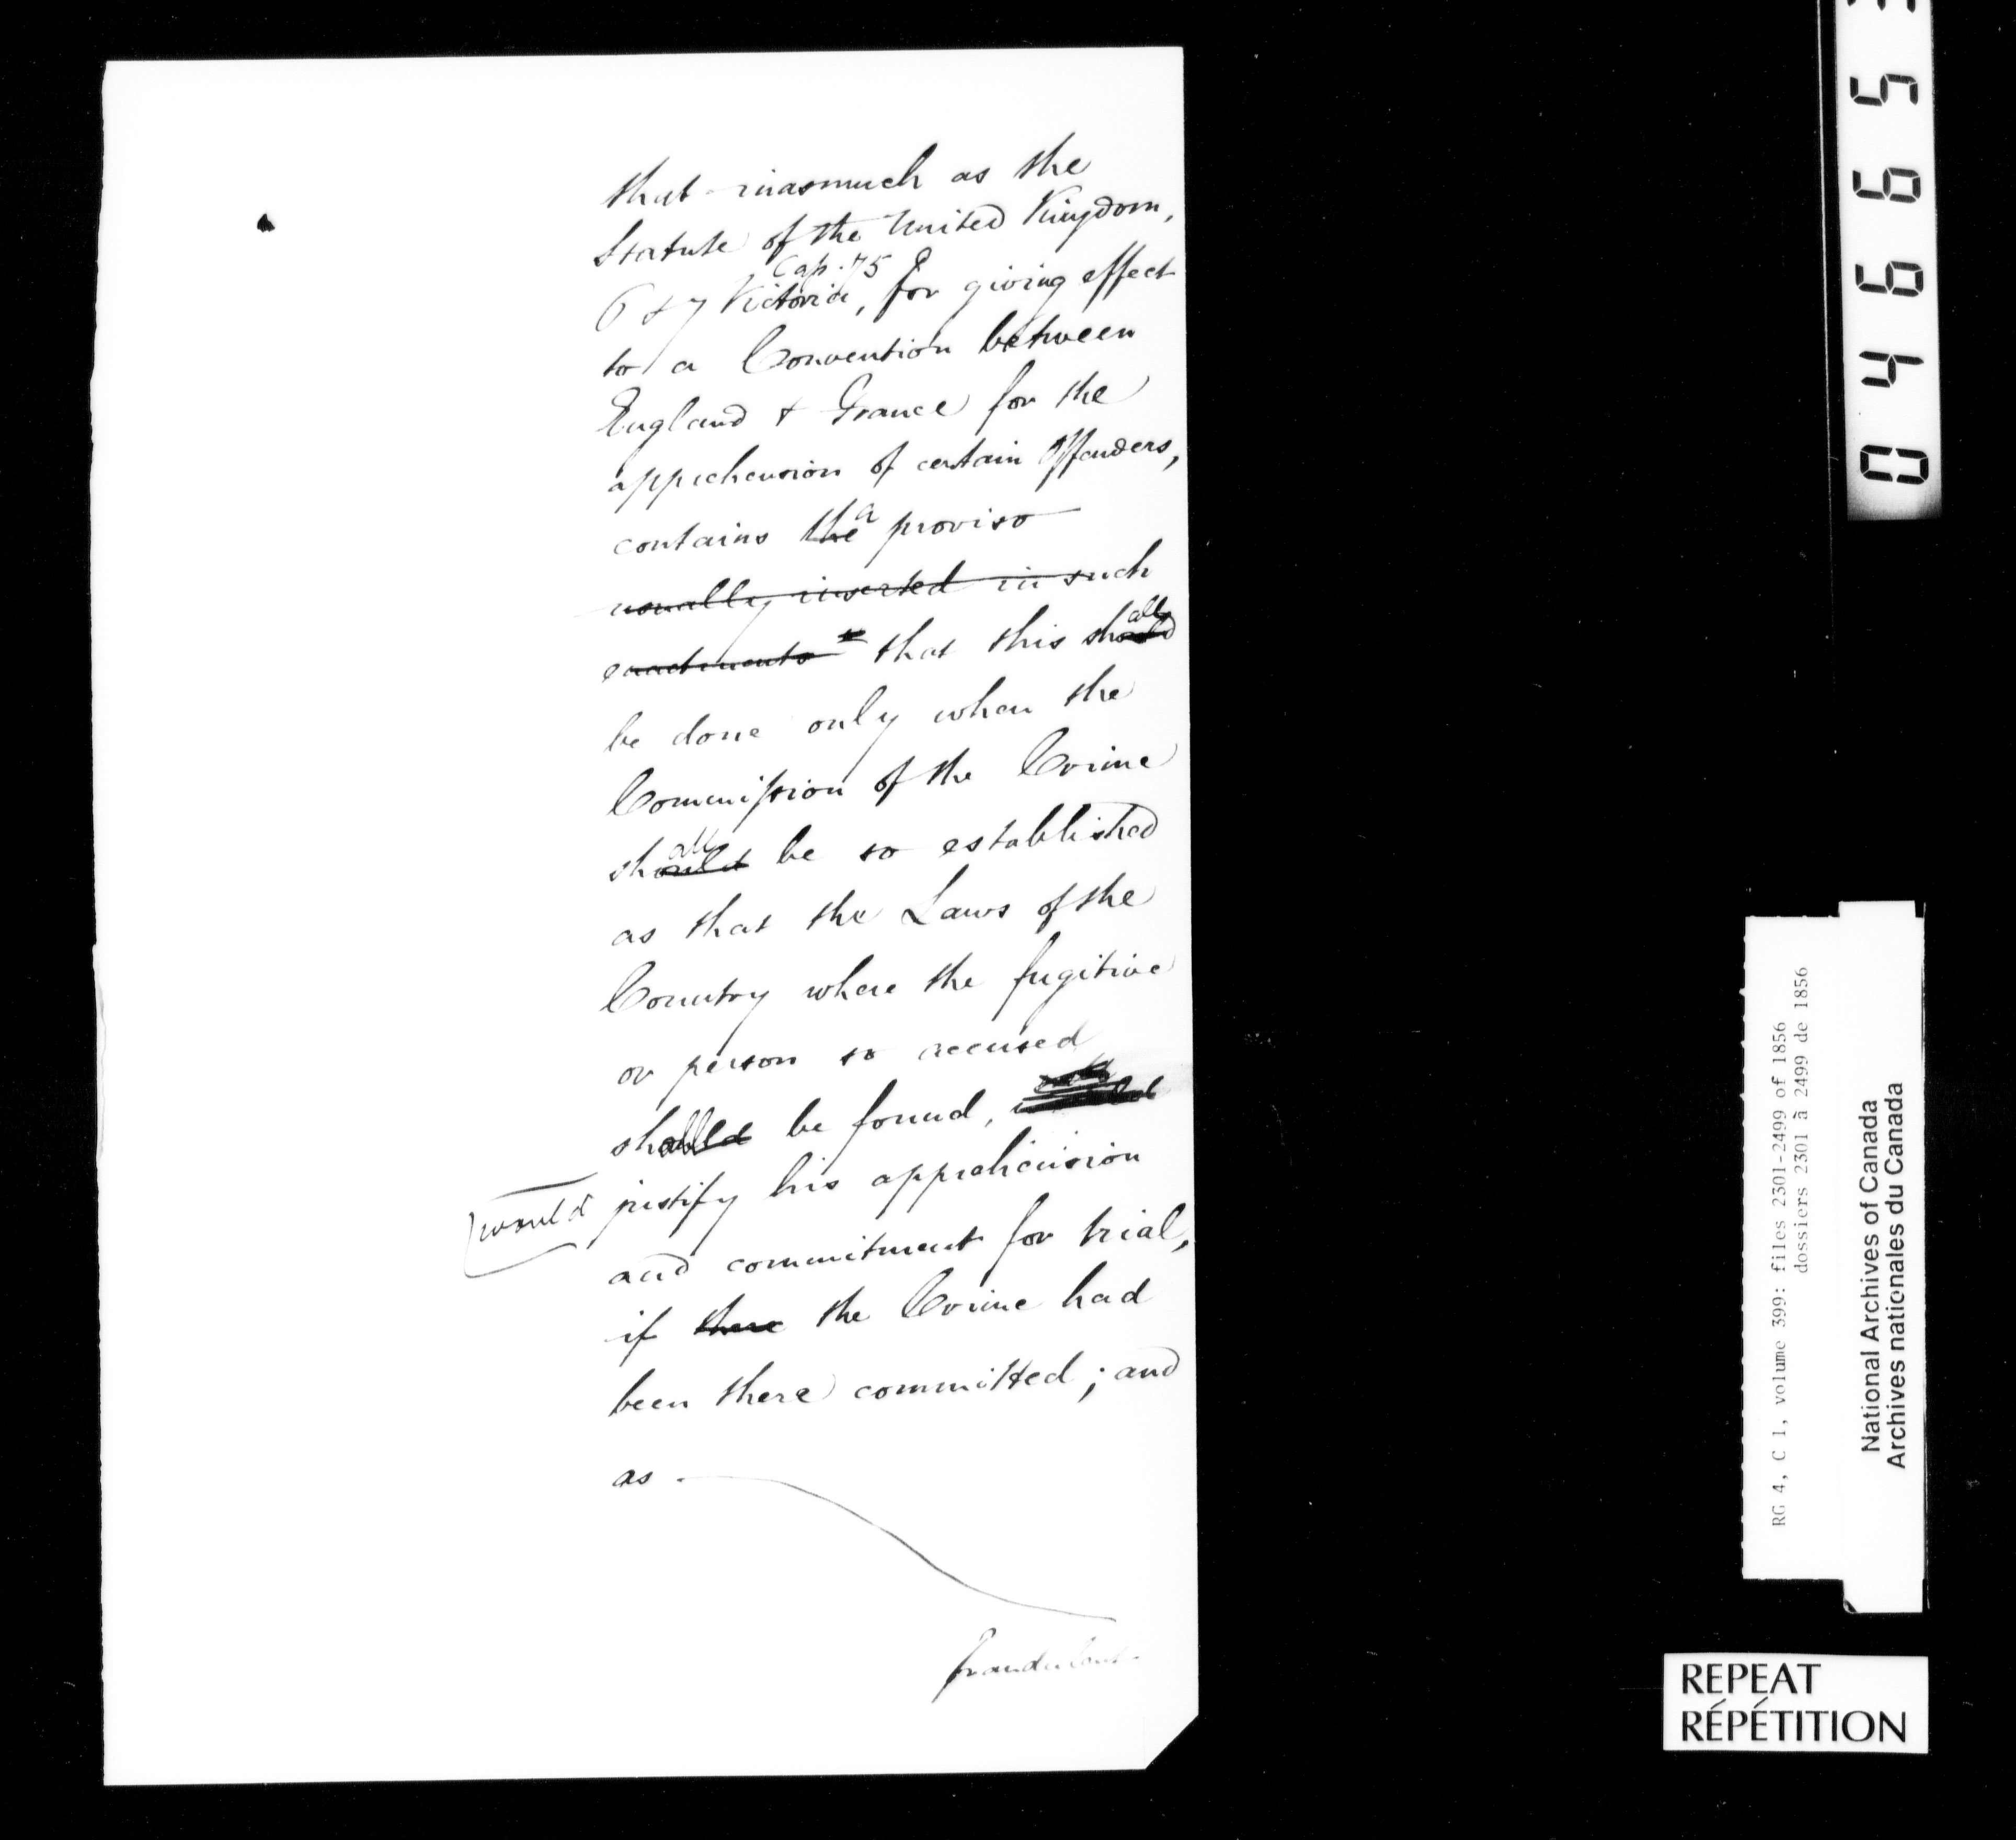 that inasmuch as the
Statute of the United Kingdom,
Cap. 75
6 & 7 Victoria, for giving effect
to a Convention between
England & France for the
apprehension of certain Offenders,
contains the a proviso
usually inserted in such
enactments that this should all
be done only when the
Commission of the Crime
should all be so established
as that the Laws of the
Country where the fugitive
or person so accused
shall be found,
would justify his apprehension
and commitment for trial,
if there the Crime had
been there committed; and
as
fraudulent
046653
RG 4, C 1, volume 399: files 2301-2499 of 1856
dossiers 2301 à 2499 de 1856
National Archives of Canada
Archives nationales du Canada
REPEAT
RÉPÉTITION